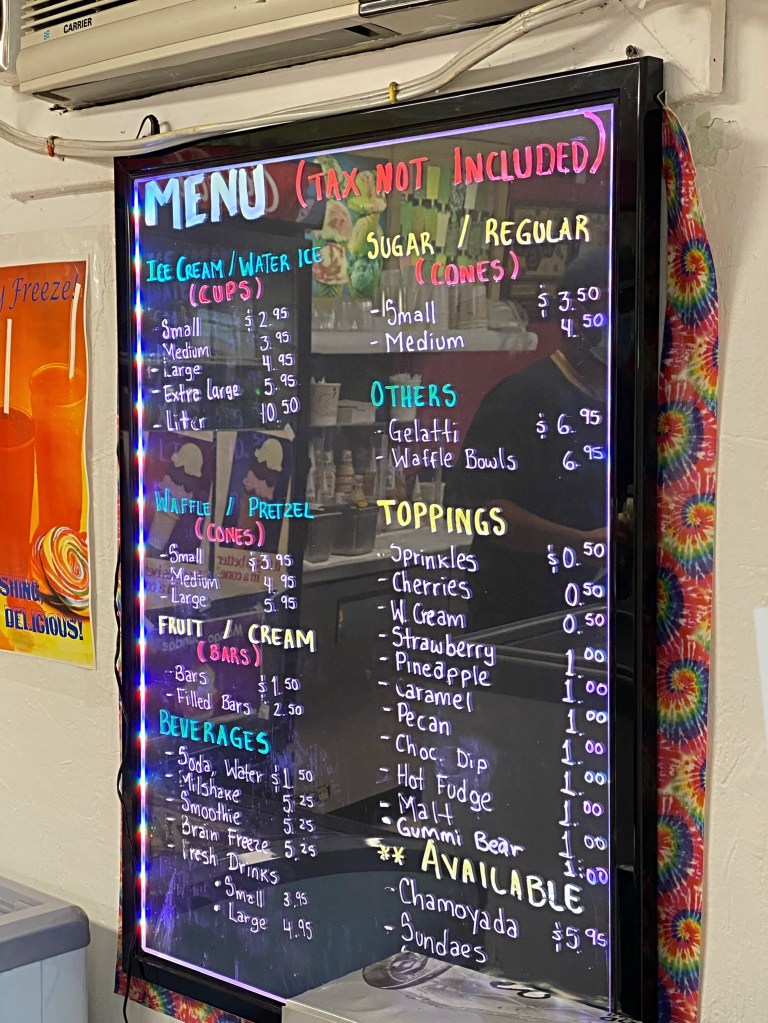 CARRIER
MENU (TAX NOT INCLUDED)
ICE CREAM / WATER ICE
(CUPS)
- Small $ 2.95
- Medium 3.95
- Large 4.95
- Extra Large 5.95
- Liter 10.50
WAFFLE / PRETZEL
(CONES)
- Small $3.95
- Medium 4.95
- Large 5.95
FRUIT / CREAM
(BARS)
- Bars $1.50
- Filled Bars 2.50
BEVERAGES
- Soda, Water $1.50
- Milshake 5.25
- Smoothie 5.25
- Brain Freeze 5.25
- Fresh Drinks
• Small 3.95
• Large 4.95
SUGAR / REGULAR
(CONES)
- Small $ 3.50
- Medium 4.50
OTHERS
- Gelatti $ 6.95
- Waffle Bowls 6.95
TOPPINGS
- Sprinkles $0.50
- Cherries 0.50
- W. Cream 0.50
- Strawberry 1.00
- Pineapple 1.00
- Caramel 1.00
- Pecan 1.00
- Choc. Dip 1.00
- Hot Fudge 1.00
- Malt 1.00
• Gummi Bear 1:00
** AVAILABLE
- Chamoyada $5.95
- Sundaes
y Freeze!
SHING,
DELICIOUS!